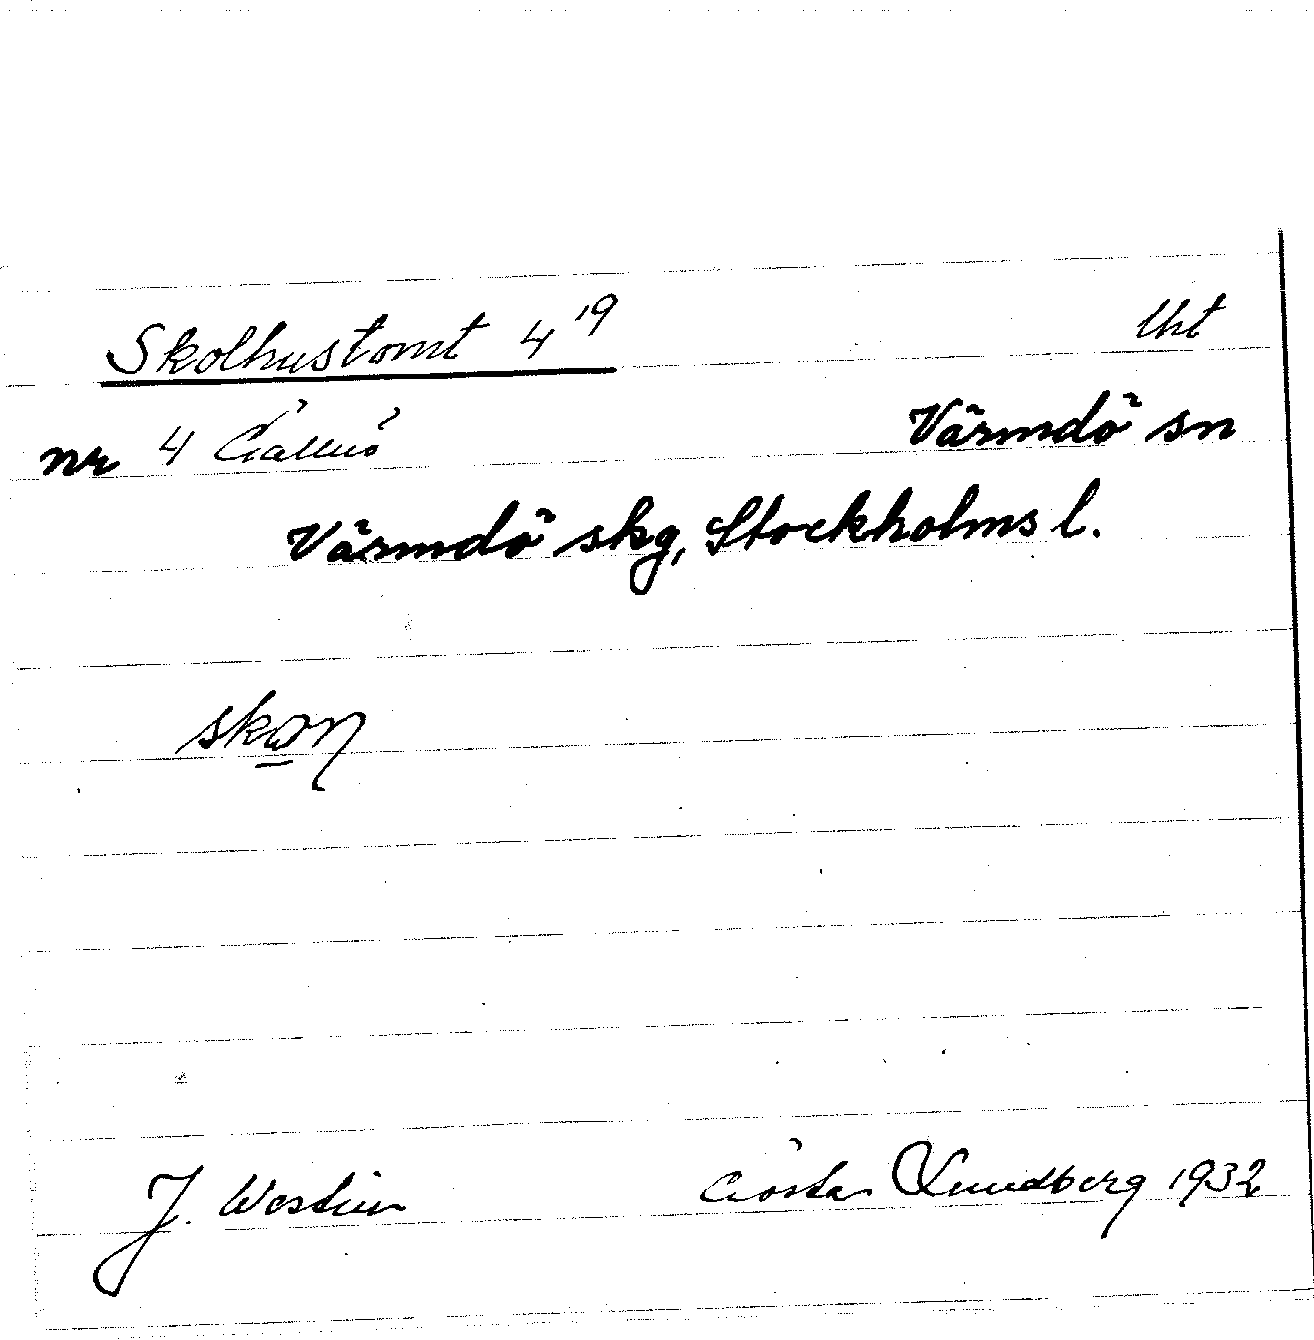 Skolhustomt 4¹⁹ lht
nr 4 Gällnö Värmdö sn
Värmdö skg, Stockholms l.
J. Westin Gösta Lundberg 1932